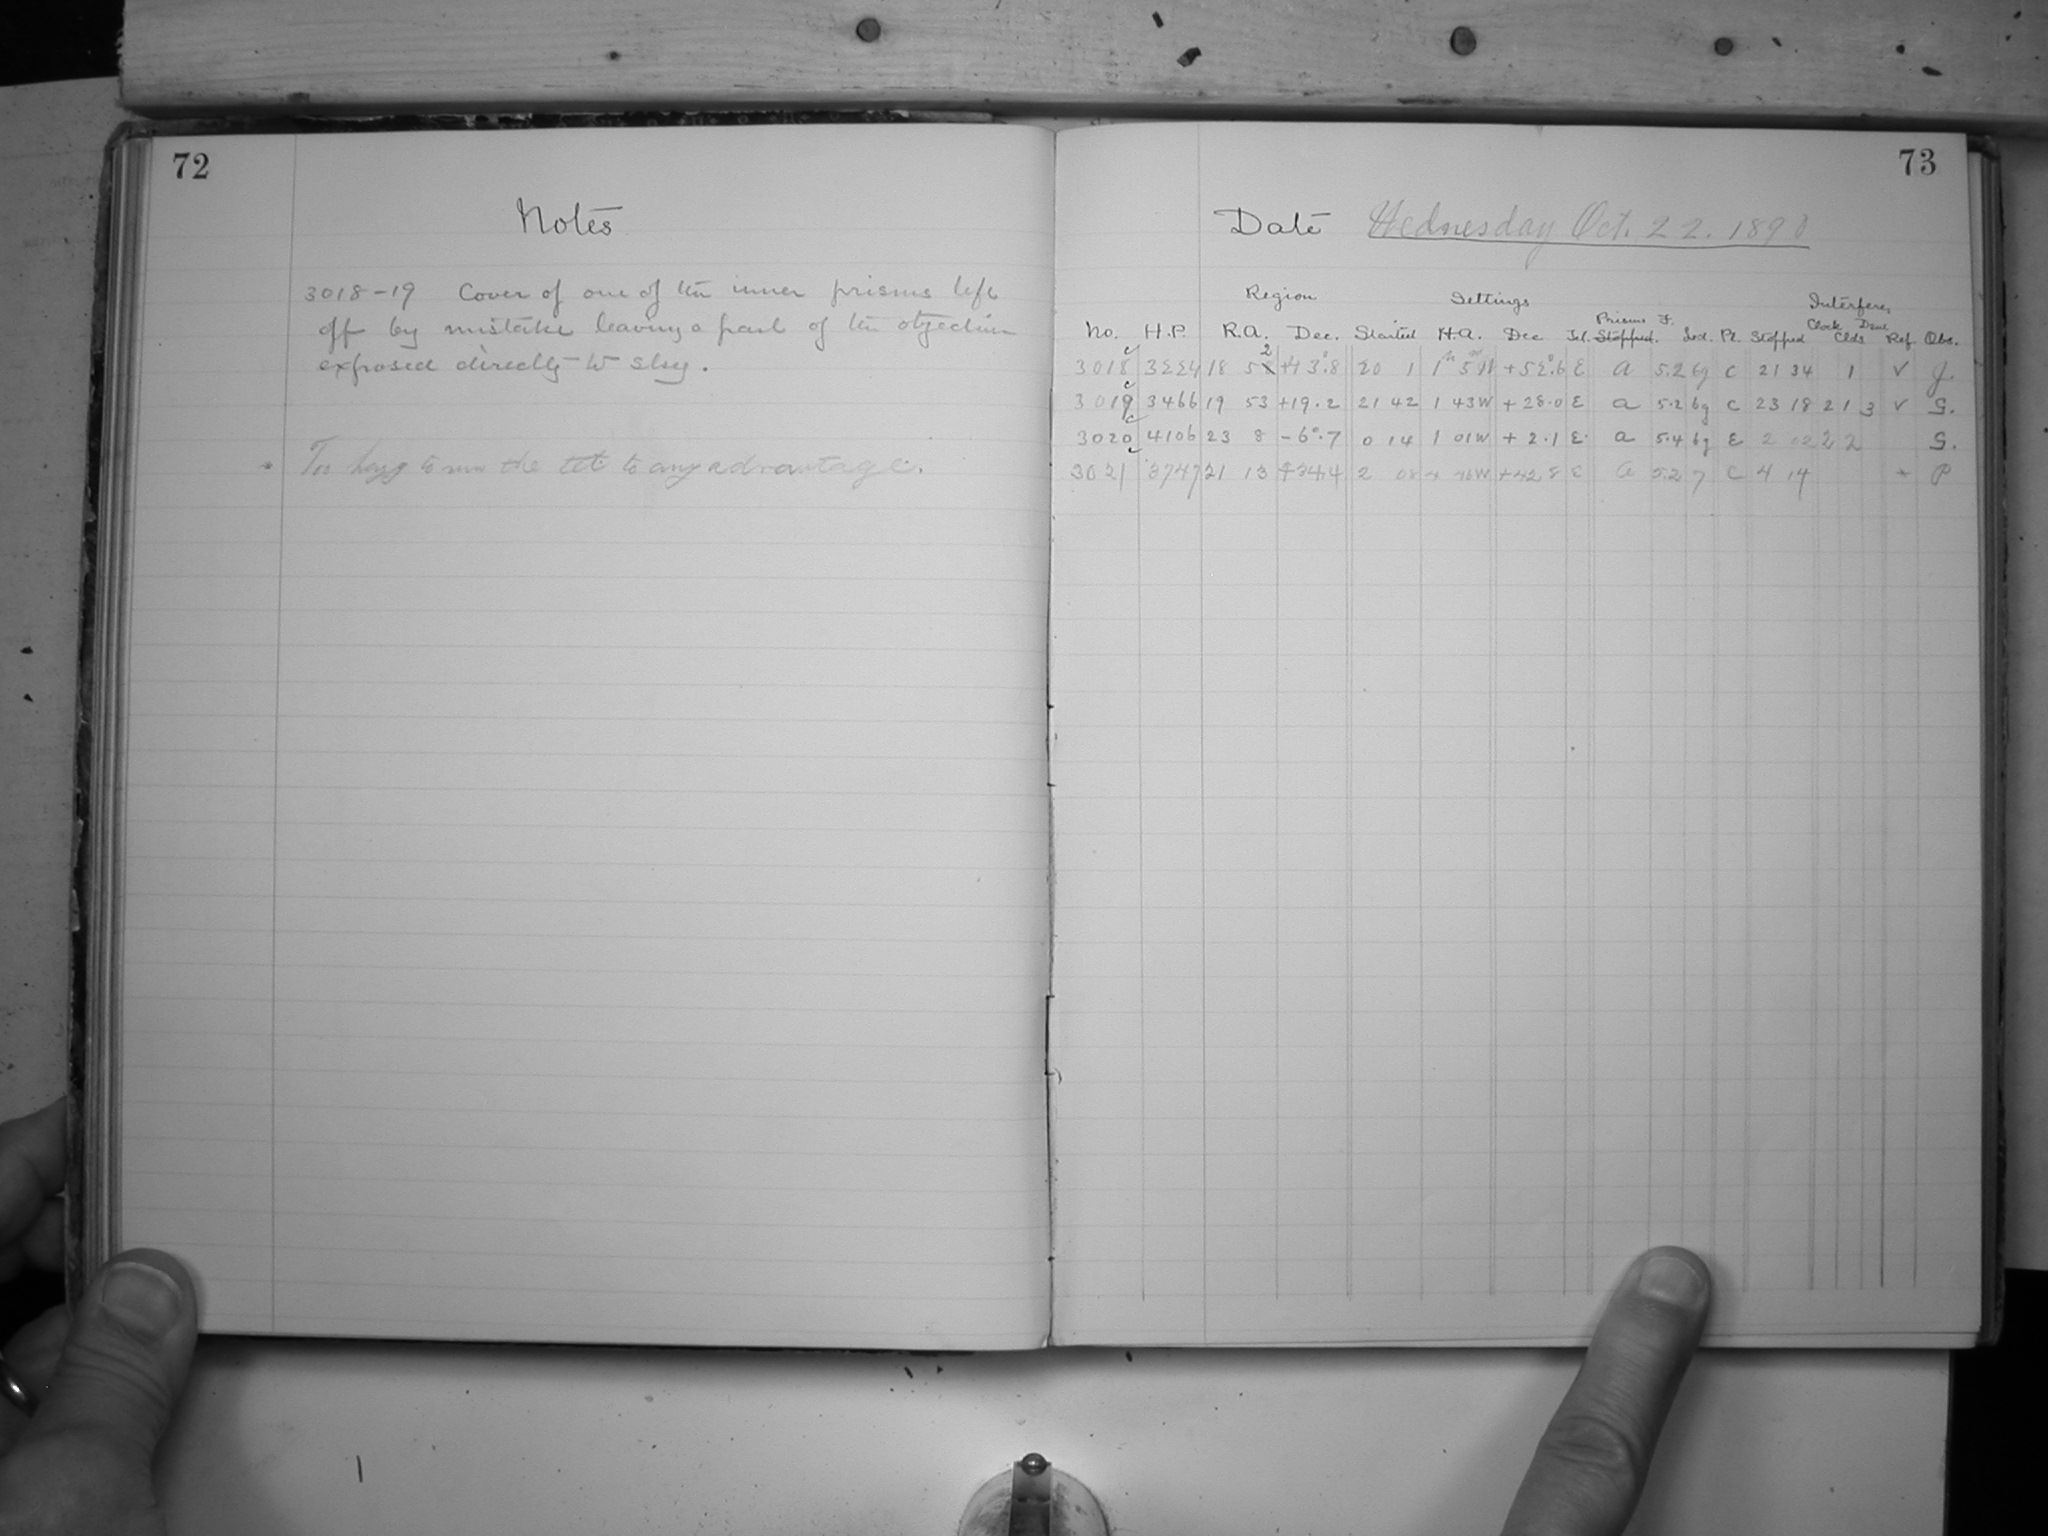 72
Notes
3018-19 Cover of one of the inner prisms left
off by mistake leaving a part of the objective
exposed directly to sky.
* Too hazy to run the tel. to any advantage.
73
Date Wednesday Oct. 22. 1890
Region Settings Interfer.
Prisms F. Clock Dew
No. H.P. R.A. Dec. Started H.A. Dec Tel. Stopped. Pl. Stopped Clds Ref. Obs.
3018 18 52 +43°.8 20 1 1h 5m W +52°.6 E a 5.2 6g C 21 34 1 v J.
3019 3466 19 53 +19.2 21 42 1 43W +28.0 E a 5.2 6g C 23 18 2 1 3 v G.
3020 4106 23 8 -6°.7 0 14 1 01W +2.1 E a 5.4 6g E 2 02 2 2 G.
3021 3747 21 13 +34.4 2 08 +42.8 E a 5.2 7 C 4 14 * P